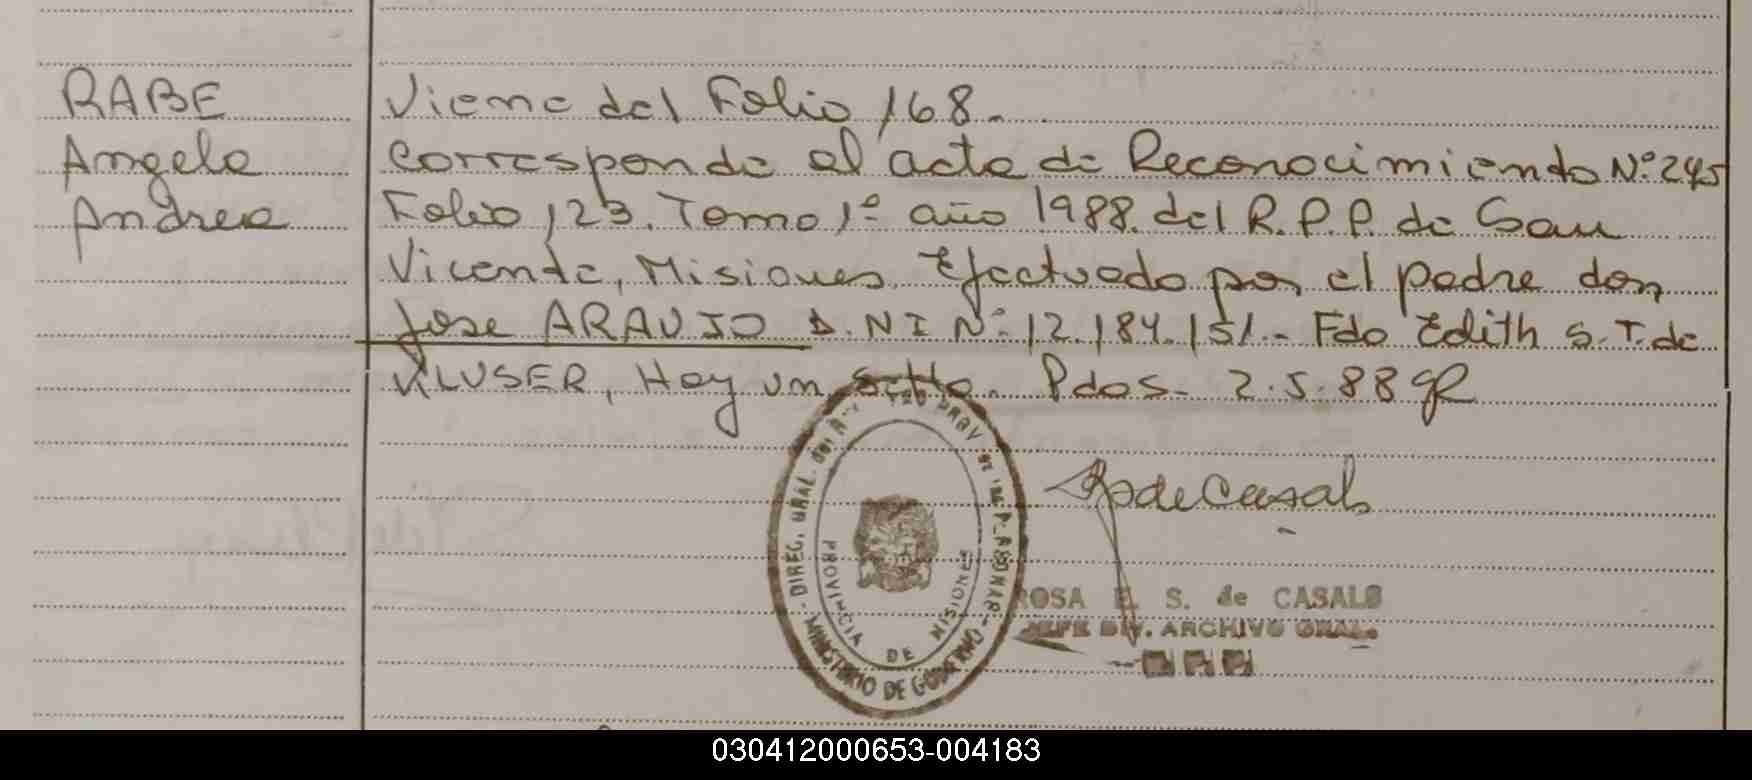 RABE
Angela
Andrea
Viene del Folio 168.-
Corresponde al acta de Reconocimiento Nº 245
Folio 123. Tomo 1º año 1988. del R.P.P. de San
Vicente, Misiones. Efectuado por el padre don
Jose ARAUJO D.NI Nº 12.184.151.- Fdo Edith S.T. de
KLUSER, Hay un sello. Pdos- 2.5.88
de Casals
ROSA E. S. de CASALS
JEFE DIV. ARCHIVO GRAL.
DIREC. GRAL. DEL
MINISTERIO DE GOBIERNO
PROVINCIA DE MISIONES
030412000653-004183